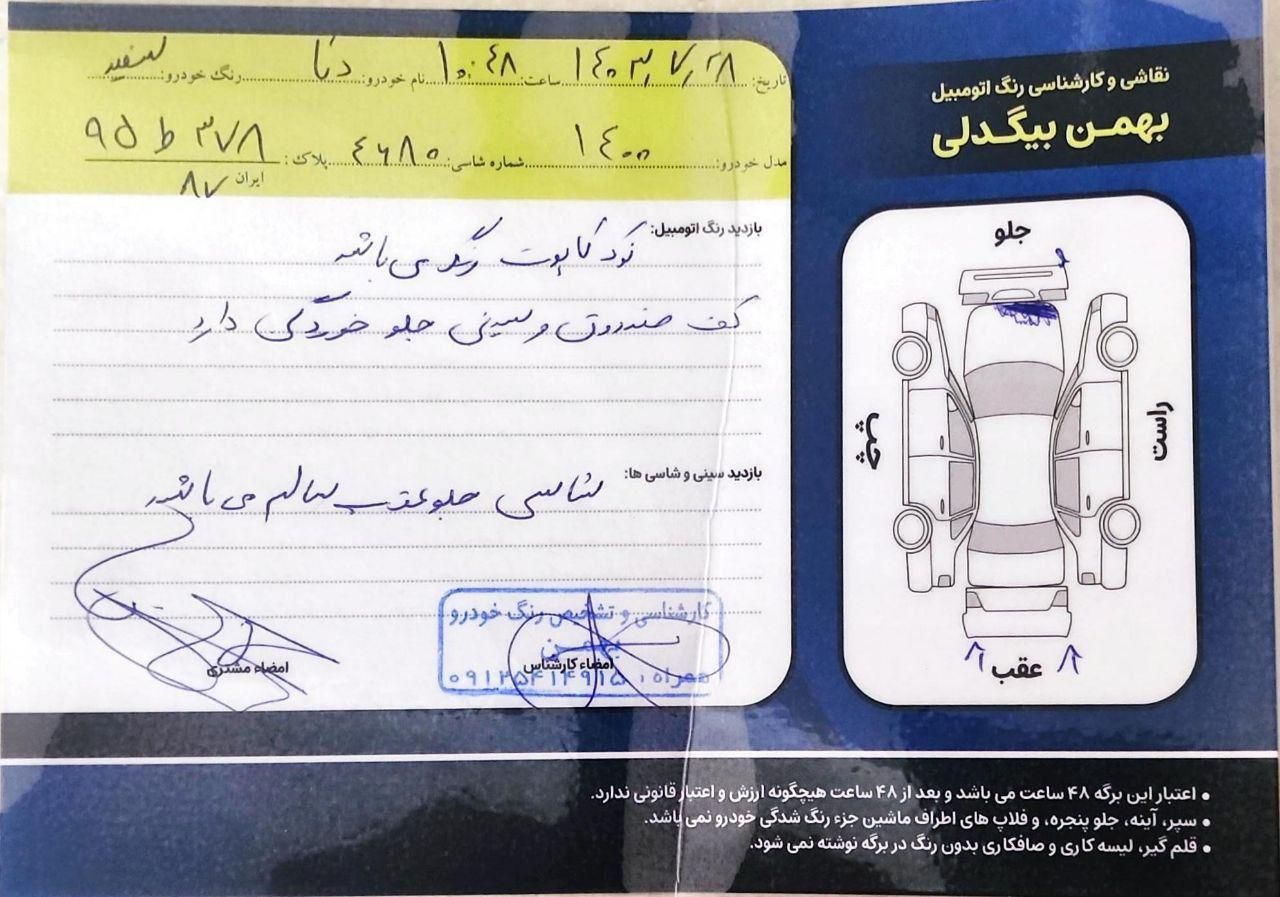 نقاشی و کارشناسی رنگ اتومبیل
بهمن بیگدلی
تاریخ: ۱۴۰۳/۷/۲۸ ساعت: ۱۰:۴۸ نام خودرو: دنا رنگ خودرو: سفید
مدل خودرو: ۱۴۰۰ شماره شاسی: ۴۶۸۰ پلاک: ۹۵ ط ۳۷۸
ایران ۸۷
بازدید رنگ اتومبیل:
نوک کاپوت رنگ می باشد
کف صندوق و سینی جلو خوردگی دارد
بازدید سینی و شاسی ها:
شاسی جلو عقب سالم می باشد
کارشناسی و تشخیص رنگ خودرو
بهمن
امضاء کارشناس
همراه: ۰۹۱۲۵۴۱۴۹۱۵
امضاء مشتری
جلو
راست
چپ
عقب
• اعتبار این برگه ۴۸ ساعت می باشد و بعد از ۴۸ ساعت هیچگونه ارزش و اعتبار قانونی ندارد.
• سپر، آینه، جلو پنجره، و فلاپ های اطراف ماشین جزء رنگ شدگی خودرو نمی باشد.
• قلم گیر، لیسه کاری و صافکاری بدون رنگ در برگه نوشته نمی شود.